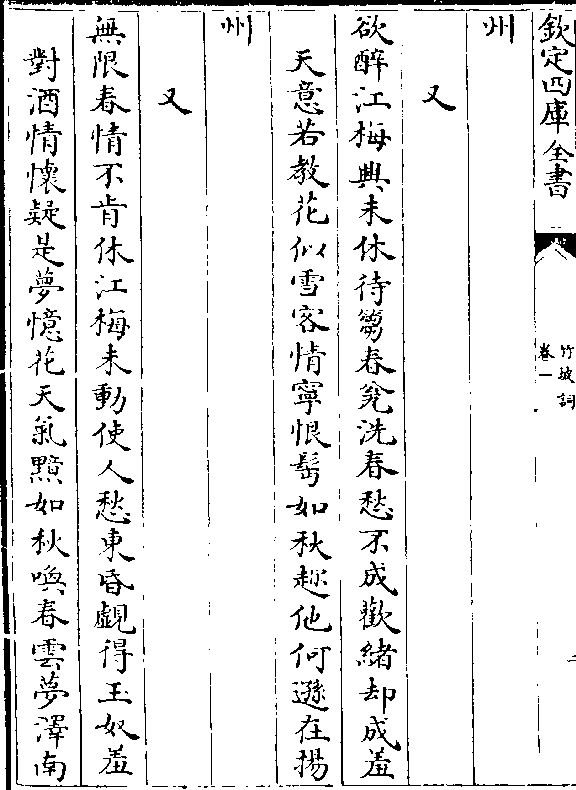 欽定四庫全書
竹坡詞
卷一
二
州
又
欲醉江梅興未休待芻春瓮洗春愁不成歡緒却成羞
天意若教花似雪客情寧恨髩如秋趂他何遜在揚
州
又
無限春情不肯休江梅未動使人愁東昏覷得玉奴羞
對酒情懷疑是夢憶花天氣黯如秋喚春雲夢澤南